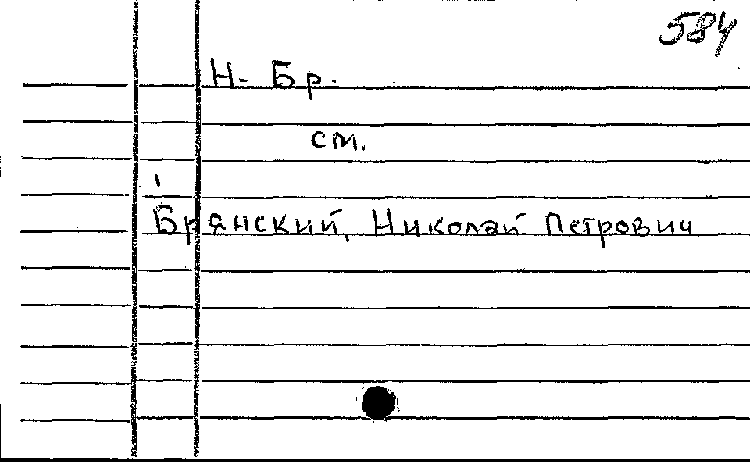 584
Н. Бр.
см.
Брянский, Николай Петрович